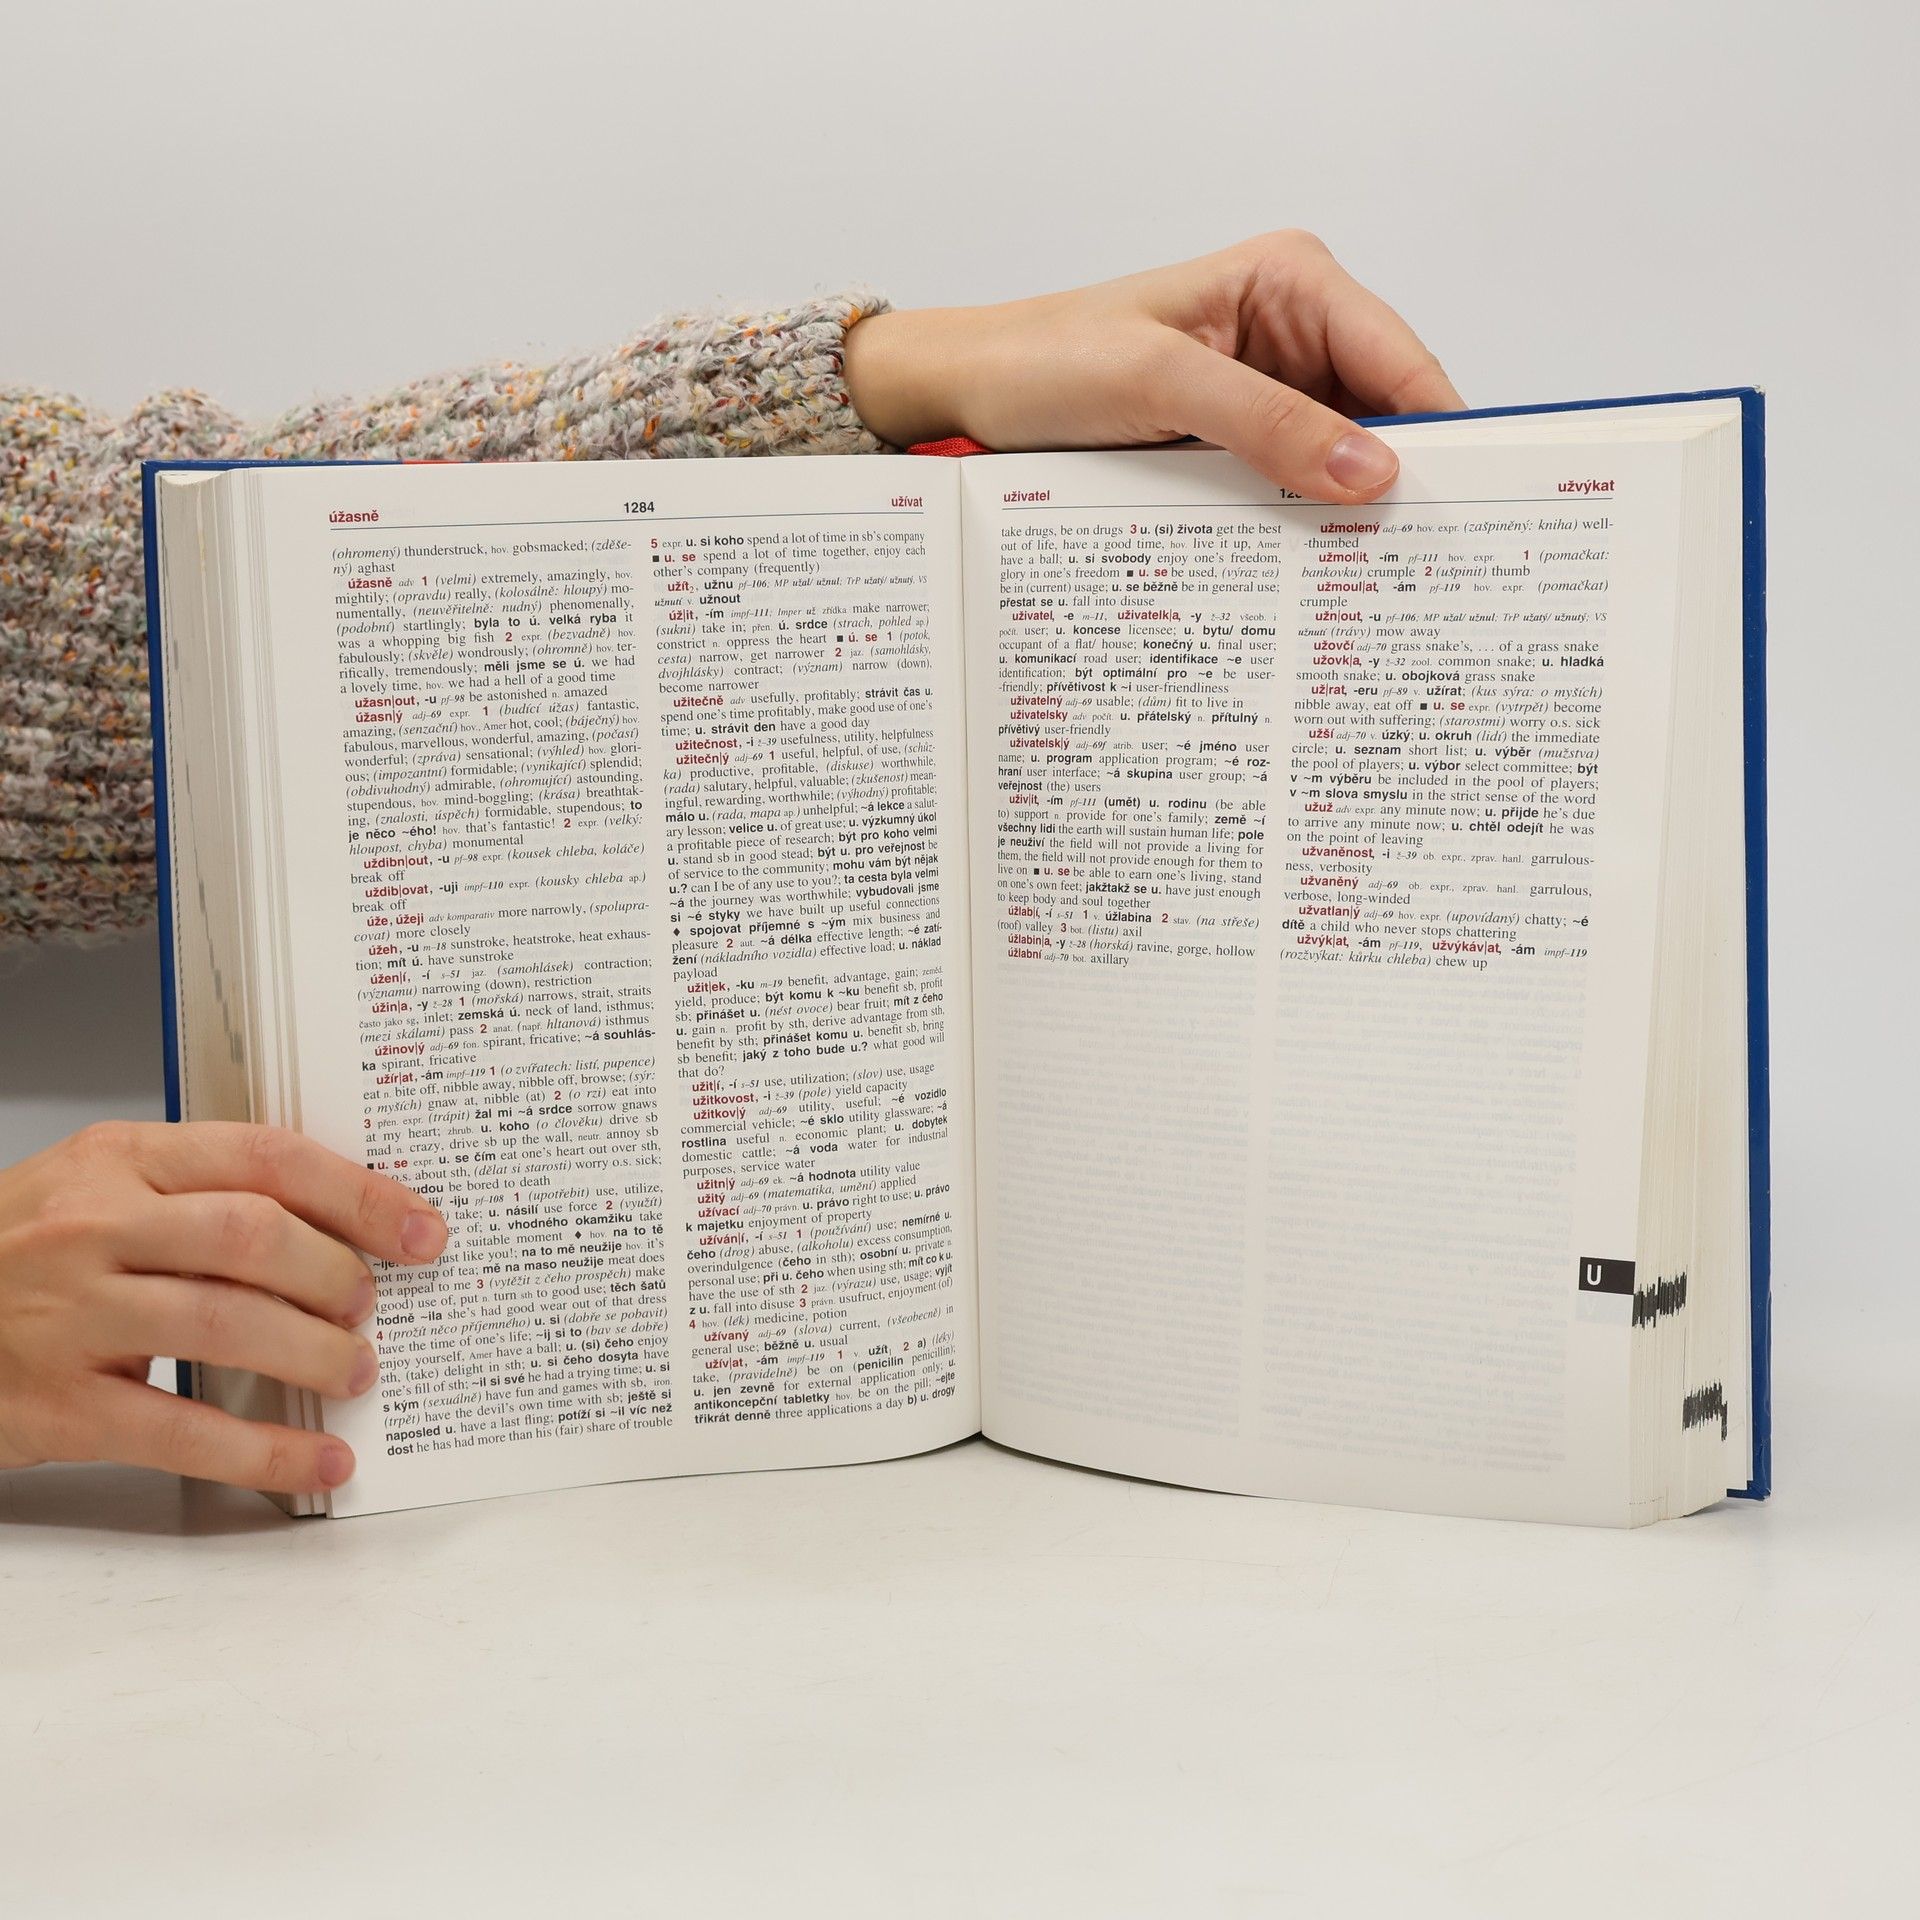 úžasně
1284
užívat
(ohromený) thunderstruck, hov. gobsmacked; (zděše-
ný) aghast
úžasně adv 1 (velmi) extremely, amazingly, hov.
mightily; (opravdu) really, (kolosálně: hloupý) mo-
numentally, (neuvěřitelně: nudný) phenomenally,
(podobní) startlingly; byla to ú. velká ryba it
was a whopping big fish 2 expr. (bezvadně) hov.
fabulously; (skvěle) wondrously; (ohromně) hov. ter-
rifically, tremendously; měli jsme se ú. we had
a lovely time, hov. we had a hell of a good time
užasn|out, -u pf–98 be astonished n. amazed
úžasn|ý adj–69 expr. 1 (budící úžas) fantastic,
amazing, (senzační) hov., Amer hot, cool; (báječný) hov.
fabulous, marvellous, wonderful, amazing, (počasí)
wonderful; (zpráva) sensational; (výhled) hov. glori-
ous; (impozantní) formidable; (vynikající) splendid;
(obdivuhodný) admirable, (ohromující) astounding,
stupendous, hov. mind-boggling; (krása) breathtak-
ing, (znalosti, úspěch) formidable, stupendous; to
je něco ~ého! hov. that's fantastic! 2 expr. (velký:
hloupost, chyba) monumental
uždibn|out, -u pf–98 expr. (kousek chleba, koláče)
break off
uždib|ovat, -uji impf–110 expr. (kousky chleba ap.)
break off
úže, úžeji adv komparativ more narrowly, (spolupra-
covat) more closely
úžeh, -u m–18 sunstroke, heatstroke, heat exhaus-
tion; mít ú. have sunstroke
úžen|í, -í s–51 jaz. (samohlásek) contraction;
(významu) narrowing (down), restriction
úžin|a, -y ž–28 1 (mořská) narrows, strait, straits
často jako sg, inlet; zemská ú. neck of land, isthmus;
(mezi skálami) pass 2 anat. (např. hltanová) isthmus
úžinov|ý adj–69 fon. spirant, fricative; ~á souhlás-
ka spirant, fricative
užír|at, -ám impf–119 1 (o zvířatech: listí, pupence)
eat n. bite off, nibble away, nibble off, browse; (sýr:
o myších) gnaw at, nibble (at) 2 (o rzi) eat into
3 přen. expr. (trápit) žal mi ~á srdce sorrow gnaws
at my heart; zhrub. u. koho (o člověku) drive sb
mad n. crazy, drive sb up the wall, neutr. annoy sb
■ u. se expr. u. se čím eat one's heart out over sth,
o.s. about sth, (dělat si starosti) worry o.s. sick;
nudou be bored to death
-iju pf–108 1 (upotřebit) use, utilize,
take; u. násilí use force 2 (využít)
of; u. vhodného okamžiku take
a suitable moment ♦ hov. na to tě
just like you!; na to mě neužije hov. it's
not my cup of tea; mě na maso neužije meat does
not appeal to me 3 (vytěžit z čeho prospěch) make
(good) use of, put n. turn sth to good use; těch šatů
hodně ~ila she's had good wear out of that dress
4 (prožít něco příjemného) u. si (dobře se pobavit)
have the time of one's life; ~ij si to (bav se dobře)
enjoy yourself, Amer have a ball; u. (si) čeho enjoy
sth, (take) delight in sth; u. si čeho dosyta have
one's fill of sth; ~il si své he had a trying time; u. si
s kým (sexuálně) have fun and games with sb, iron.
(trpět) have the devil's own time with sb; ještě si
naposled u. have a last fling; potíží si ~il víc než
dost he has had more than his (fair) share of trouble
5 expr. u. si koho spend a lot of time in sb's company
■ u. se spend a lot of time together, enjoy each
other's company (frequently)
užít2, užnu pf–106; MP užal/ užnul; TrP užatý/ užnutý, VS
užnutí v. užnout
úž|it, -ím impf–111; Imper už zřídka make narrower;
(sukni) take in; přen. ú. srdce (strach, pohled ap.)
constrict n. oppress the heart ■ ú. se 1 (potok,
cesta) narrow, get narrower 2 jaz. (samohlásky,
dvojhlásky) contract; (význam) narrow (down),
become narrower
užitečně adv usefully, profitably; strávit čas u.
spend one's time profitably, make good use of one's
time; u. strávit den have a good day
užitečnost, -i ž–39 usefulness, utility, helpfulness
užitečn|ý adj–69 1 useful, helpful, of use, (schůz-
ka) productive, profitable, (diskuse) worthwhile,
(rada) salutary, helpful, valuable; (zkušenost) mean-
ingful, rewarding, worthwhile; (výhodný) profitable;
málo u. (rada, mapa ap.) unhelpful; ~á lekce a salut-
ary lesson; velice u. of great use; u. výzkumný úkol
a profitable piece of research; být pro koho velmi
u. stand sb in good stead; být u. pro veřejnost be
of service to the community; mohu vám být nějak
u.? can I be of any use to you?; ta cesta byla velmi
~á the journey was worthwhile; vybudovali jsme
si ~é styky we have built up useful connections
♦ spojovat příjemné s ~ým mix business and
pleasure 2 aut. ~á délka effective length; ~é zatí-
žení (nákladního vozidla) effective load; u. náklad
payload
užit|ek, -ku m–19 benefit, advantage, gain; zeměd.
yield, produce; být komu k ~ku benefit sb, profit
sb; přinášet u. (nést ovoce) bear fruit; mít z čeho
u. gain n. profit by sth, derive advantage from sth,
benefit by sth; přinášet komu u. benefit sb, bring
sb benefit; jaký z toho bude u.? what good will
that do?
užit|í, -í s–51 use, utilization; (slov) use, usage
užitkovost, -i ž–39 (pole) yield capacity
užitkov|ý adj–69 utility, useful; ~é vozidlo
commercial vehicle; ~é sklo utility glassware; ~á
rostlina useful n. economic plant; u. dobytek
domestic cattle; ~á voda water for industrial
purposes, service water
užitn|ý adj–69 ek. ~á hodnota utility value
užitý adj–69 (matematika, umění) applied
užívací adj–70 právn. u. právo right to use; u. právo
k majetku enjoyment of property
užíván|í, -í s–51 1 (používání) use; nemírné u.
čeho (drog) abuse, (alkoholu) excess consumption,
overindulgence (čeho in sth); osobní u. private n.
personal use; při u. čeho when using sth; mít co k u.
have the use of sth 2 jaz. (výrazu) use, usage; vyjít
z u. fall into disuse 3 právn. usufruct, enjoyment (of)
4 hov. (lék) medicine, potion
užívaný adj–69 (slova) current, (všeobecně) in
general use; běžně u. usual
užív|at, -ám impf–119 1 v. užít1 2 a) (léky)
take, (pravidelně) be on (penicilin penicillin);
u. jen zevně for external application only; u.
antikoncepční tabletky hov. be on the pill; ~ejte
třikrát denně three applications a day b) u. drogy
uživatel
užvýkat
take drugs, be on drugs 3 u. (si) života get the best
out of life, have a good time, hov. live it up, Amer
have a ball; u. si svobody enjoy one's freedom,
glory in one's freedom ■ u. se be used, (výraz též)
be in (current) usage; u. se běžně be in general use;
přestat se u. fall into disuse
uživatel, -e m–11, uživatelk|a, -y ž–32 všeob. i
počít. user; u. koncese licensee; u. bytu/ domu
occupant of a flat/ house; konečný u. final user;
u. komunikací road user; identifikace ~e user
identification; být optimální pro ~e be user-
-friendly; přívětivost k ~i user-friendliness
uživatelný adj–69 usable; (dům) fit to live in
uživatelsky adv počít. u. přátelský n. přítulný n.
přívětivý user-friendly
uživatelsk|ý adj–69f atrib. user; ~é jméno user
name; u. program application program; ~é roz-
hraní user interface; ~á skupina user group; ~á
veřejnost (the) users
uživ|it, -ím pf–111 (umět) u. rodinu (be able
to) support n. provide for one's family; země ~í
všechny lidi the earth will sustain human life; pole
je neuživí the field will not provide a living for
them, the field will not provide enough for them to
live on ■ u. se be able to earn one's living, stand
on one's own feet; jakžtakž se u. have just enough
to keep body and soul together
úžlab|í, -í s–51 1 v. úžlabina 2 stav. (na střeše)
(roof) valley 3 bot. (listu) axil
úžlabin|a, -y ž–28 (horská) ravine, gorge, hollow
úžlabní adj–70 bot. axillary
užmolený adj–69 hov. expr. (zašpiněný: kniha) well-
-thumbed
užmol|it, -ím pf–111 hov. expr. 1 (pomačkat:
bankovku) crumple 2 (ušpinit) thumb
užmoul|at, -ám pf–119 hov. expr. (pomačkat)
crumple
užn|out, -u pf–106; MP užal/ užnul; TrP užatý/ užnutý; VS
užnutí (trávy) mow away
užovčí adj–70 grass snake's, ... of a grass snake
užovk|a, -y ž–32 zool. common snake; u. hladká
smooth snake; u. obojková grass snake
už|rat, -eru pf–89 v. užírat; (kus sýra: o myších)
nibble away, eat off ■ u. se expr. (vytrpět) become
worn out with suffering; (starostmi) worry o.s. sick
užší adj–70 v. úzký; u. okruh (lidí) the immediate
circle; u. seznam short list; u. výběr (mužstva)
the pool of players; u. výbor select committee; být
v ~m výběru be included in the pool of players;
v ~m slova smyslu in the strict sense of the word
užuž adv expr. any minute now; u. přijde he's due
to arrive any minute now; u. chtěl odejít he was
on the point of leaving
užvaněnost, -i ž–39 ob. expr., zprav. hanl. garrulous-
ness, verbosity
užvaněný adj–69 ob. expr., zprav. hanl. garrulous,
verbose, long-winded
užvatlan|ý adj–69 hov. expr. (upovídaný) chatty; ~é
dítě a child who never stops chattering
užvýk|at, -ám pf–119, užvýkáv|at, -ám impf–119
(rozžvýkat: kůrku chleba) chew up
U